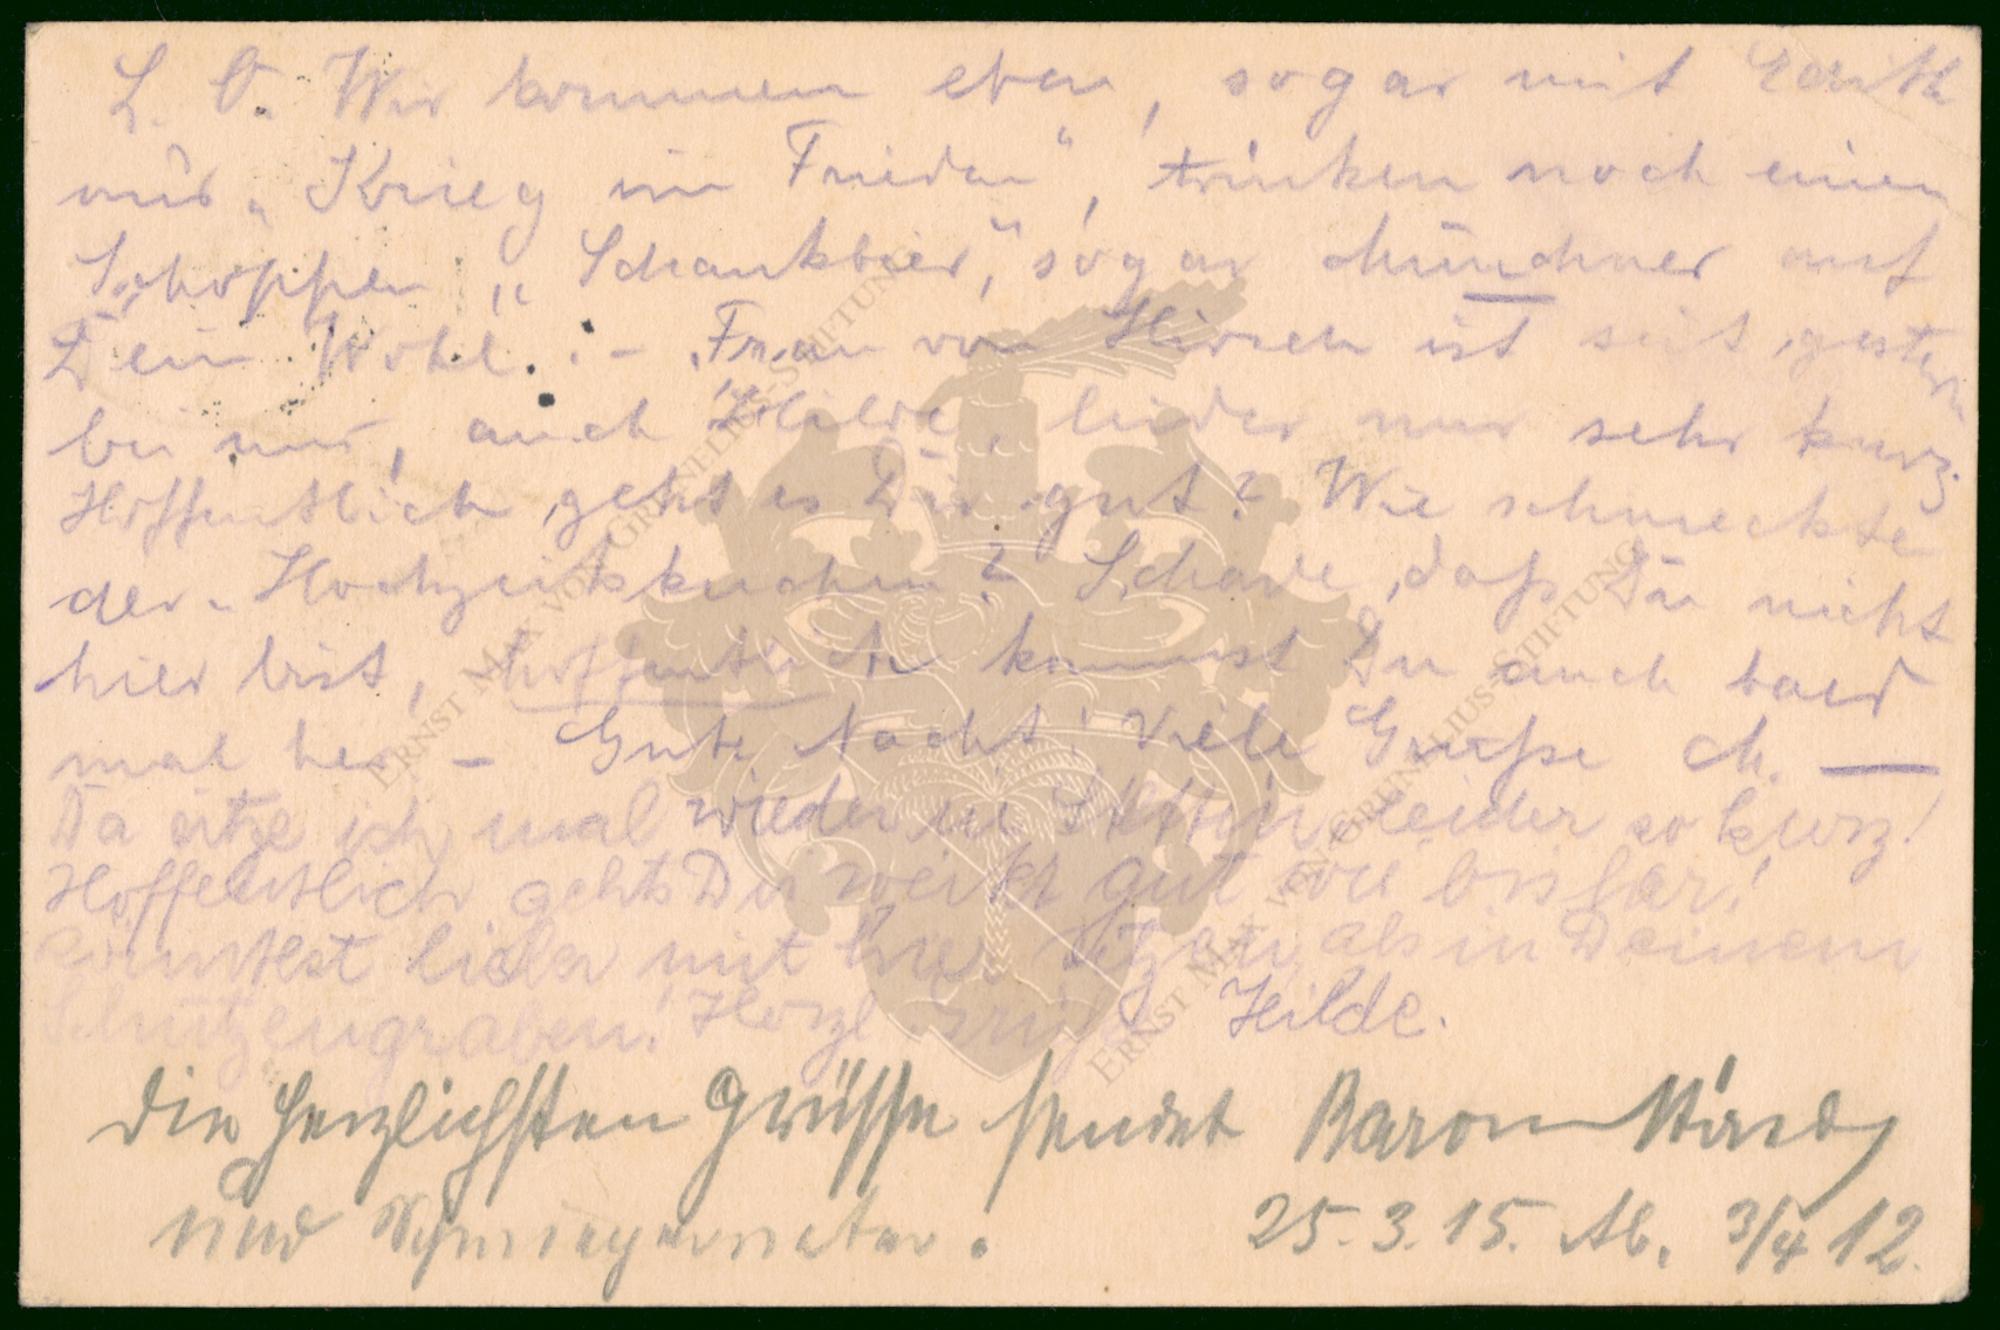 L. O. Wir kommen eben, sogar mit Edith
aus „Krieg im Frieden“, trinken noch einen
Schoppen „Schankbier“, sogar Münchner auf
Dein Wohl. – Frau von Hirsch ist seit gestern
bei mir, auch Hilde, leider nur sehr kurz.
Hoffentlich geht es Dir gut? Wie schmeckte
der Hochzeitskuchen? Schade, daß Du nicht
hier bist, hoffentlich kommst Du auch bald
mal her – Gute Nacht! Viele Grüße M. —
Da sitze ich mal wieder in Stettin, leider so kurz!
Hoffentlich gehts Dir weiter gut wie bisher!
Könntest lieber mit hier sitzen, als in Deinem
Schützengraben! Herzl. Grüße Hilde.
Die herzlichsten Grüsse sendet Baron
und
25.3.15. Ab. 3/4 12.
ERNST MAX VON GRUNELIUS-STIFTUNG
ERNST MAX VON GRUNELIUS-STIFTUNG